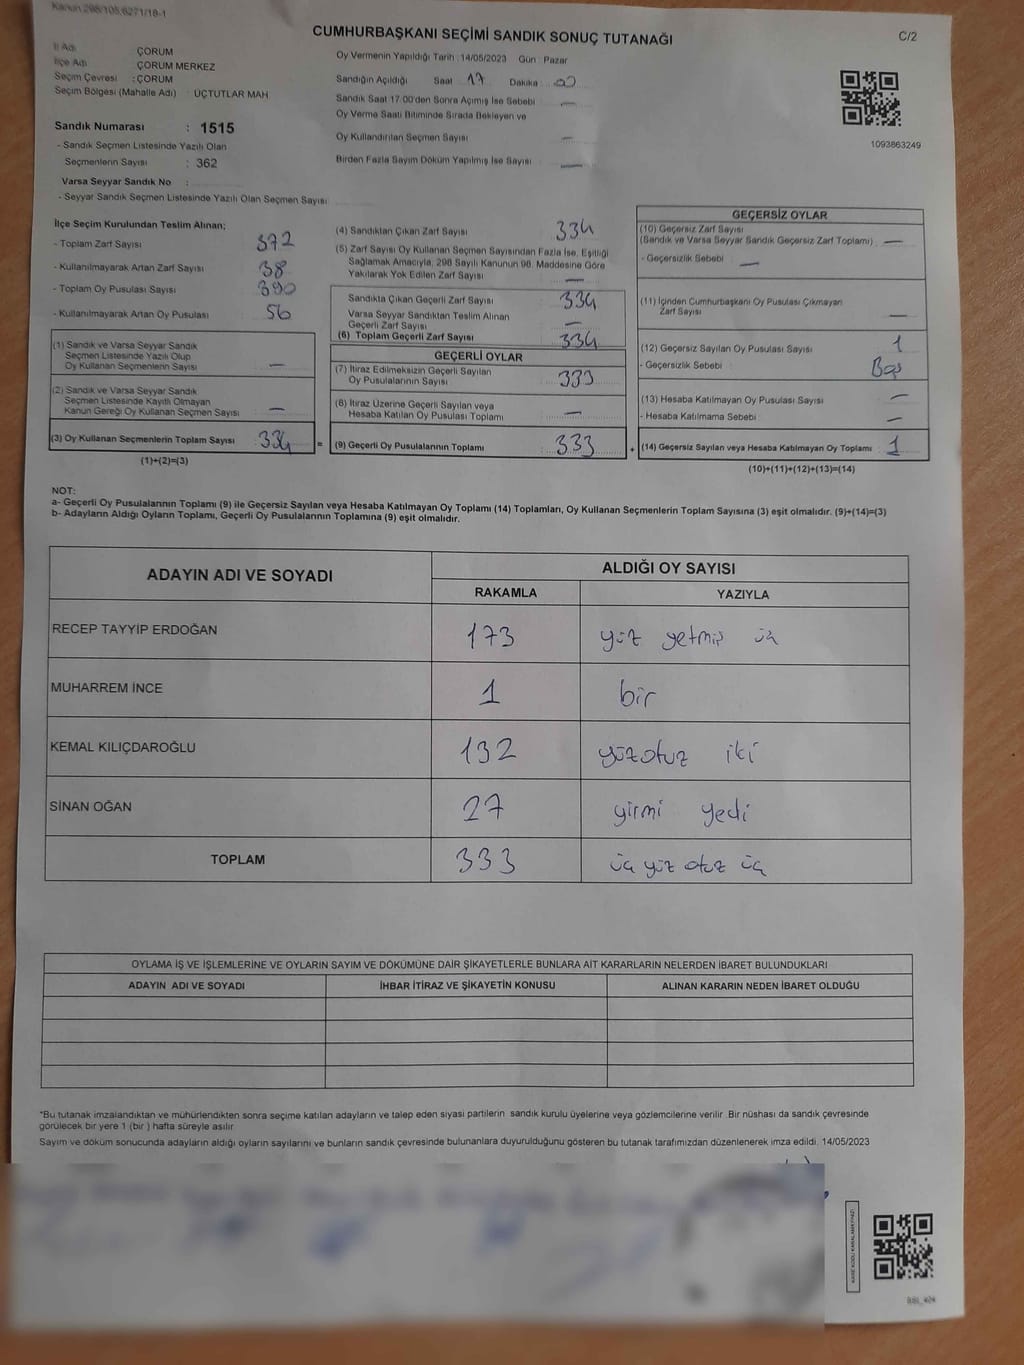 Kanun 298/105,6271/18-1
CUMHURBAŞKANI SEÇİMİ SANDIK SONUÇ TUTANAĞI
C/2
İl Adı : ÇORUM
İlçe Adı : ÇORUM MERKEZ
Seçim Çevresi : ÇORUM
Seçim Bölgesi (Mahalle Adı) : ÜÇTUTLAR MAH
Sandık Numarası : 1515
- Sandık Seçmen Listesinde Yazılı Olan
Seçmenlerin Sayısı : 362
Varsa Seyyar Sandık No :
- Seyyar Sandık Seçmen Listesinde Yazılı Olan Seçmen Sayısı
Oy Vermenin Yapıldığı Tarih : 14/05/2023 Gün : Pazar
Sandığın Açıldığı Saat : 17 Dakika : 00
Sandık Saat 17.00'den Sonra Açımış İse Sebebi —
Oy Verme Saati Bitiminde Sırada Bekleyen ve
Oy Kullandırılan Seçmen Sayısı —
Birden Fazla Sayım Döküm Yapılmış İse Sayısı —
1093863249
İlçe Seçim Kurulundan Teslim Alınan;
- Toplam Zarf Sayısı 372
- Kullanılmayarak Artan Zarf Sayısı : 38
- Toplam Oy Pusulası Sayısı : 390
- Kullanılmayarak Artan Oy Pusulası : 56
(1) Sandık ve Varsa Seyyar Sandık
Seçmen Listesinde Yazılı Olup
Oy Kullanan Seçmenlerin Sayısı : —
(2) Sandık ve Varsa Seyyar Sandık
Seçmen Listesinde Kayıtlı Olmayan
Kanun Gereği Oy Kullanan Seçmen Sayısı : —
(3) Oy Kullanan Seçmenlerin Toplam Sayısı : 334 =
(1)+(2)=(3)
(4) Sandıktan Çıkan Zarf Sayısı : 334
(5) Zarf Sayısı Oy Kullanan Seçmen Sayısından Fazla İse, Eşitliği
Sağlamak Amacıyla, 298 Sayılı Kanunun 98. Maddesine Göre
Yakılarak Yok Edilen Zarf Sayısı : —
Sandıkta Çıkan Geçerli Zarf Sayısı : 334
Varsa Seyyar Sandıktan Teslim Alınan
Geçerli Zarf Sayısı : —
(6) Toplam Geçerli Zarf Sayısı : 334
GEÇERLİ OYLAR
(7) İtiraz Edilmeksizin Geçerli Sayılan
Oy Pusulalarının Sayısı : 333
(8) İtiraz Üzerine Geçerli Sayılan veya
Hesaba Katılan Oy Pusulası Toplamı : —
(9) Geçerli Oy Pusulalarının Toplamı : 333 +
GEÇERSİZ OYLAR
(10) Geçersiz Zarf Sayısı
(Sandık ve Varsa Seyyar Sandık Geçersiz Zarf Toplamı) : —
- Geçersizlik Sebebi : —
(11) İçinden Cumhurbaşkanı Oy Pusulası Çıkmayan
Zarf Sayısı : —
(12) Geçersiz Sayılan Oy Pusulası Sayısı : 1
- Geçersizlik Sebebi : Boş
(13) Hesaba Katılmayan Oy Pusulası Sayısı : —
- Hesaba Katılmama Sebebi : —
(14) Geçersiz Sayılan veya Hesaba Katılmayan Oy Toplamı : 1
(10)+(11)+(12)+(13)=(14)
NOT:
a- Geçerli Oy Pusulalarının Toplamı (9) ile Geçersiz Sayılan veya Hesaba Katılmayan Oy Toplamı (14) Toplamları, Oy Kullanan Seçmenlerin Toplam Sayısına (3) eşit olmalıdır. (9)+(14)=(3)
b- Adayların Aldığı Oyların Toplamı, Geçerli Oy Pusulalarının Toplamına (9) eşit olmalıdır.
ADAYIN ADI VE SOYADI ALDIĞI OY SAYISI
RAKAMLA YAZIYLA
RECEP TAYYİP ERDOĞAN 173 yüz yetmiş üç
MUHARREM İNCE 1 bir
KEMAL KILIÇDAROĞLU 132 yüzotuz iki
SİNAN OĞAN 27 yirmi yedi
TOPLAM 333 üç yüz otuz üç
OYLAMA İŞ VE İŞLEMLERİNE VE OYLARIN SAYIM VE DÖKÜMÜNE DAİR ŞİKAYETLERLE BUNLARA AİT KARARLARIN NELERDEN İBARET BULUNDUKLARI
ADAYIN ADI VE SOYADI İHBAR İTİRAZ VE ŞİKAYETİN KONUSU ALINAN KARARIN NEDEN İBARET OLDUĞU
*Bu tutanak imzalandıktan ve mühürlendikten sonra seçime katılan adayların ve talep eden siyasi partilerin sandık kurulu üyelerine veya gözlemcilerine verilir. Bir nüshası da sandık çevresinde
görülecek bir yere 1 (bir ) hafta süreyle asılır
Sayım ve döküm sonucunda adayların aldığı oyların sayılarını ve bunların sandık çevresinde bulunanlara duyurulduğunu gösteren bu tutanak tarafımızdan düzenlenerek imza edildi. 14/05/2023